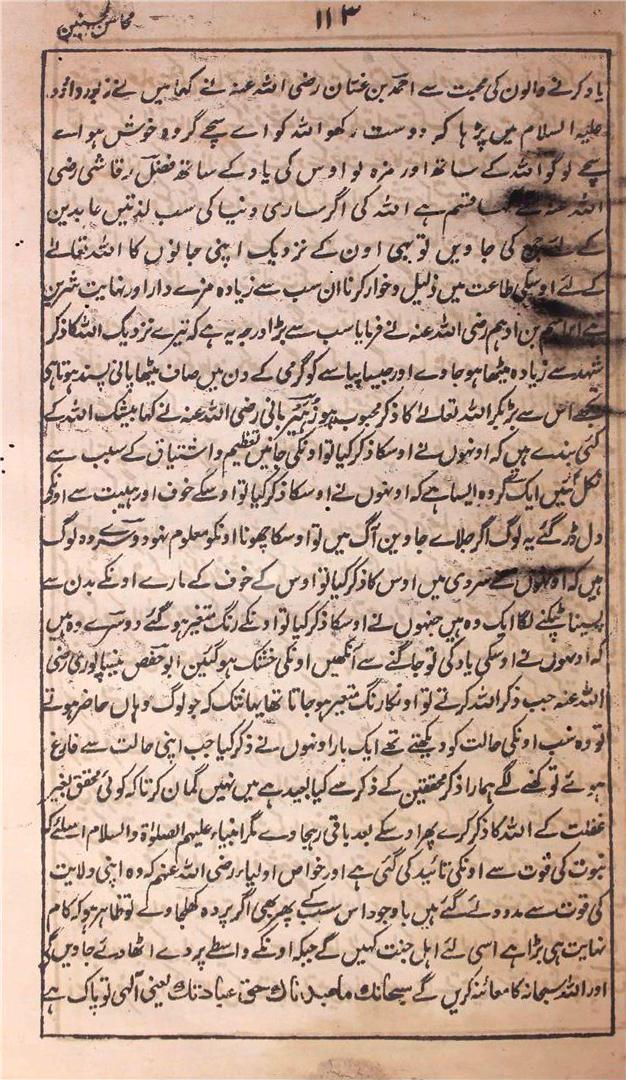 محاسن محسنین
۱۱۳
یاد کرنے والون کی محبت سے احمد بن غسان رضی اللہ عنہ نے کہا میں نے زبور داؤد
علیہ السلام میں پڑہا کہ دوست رکھو اللہ کو اے سچے گروہ خوش ہو اے
سچے لوگو اللہ کے ساتھ اور مزہ لو اوس کی یاد کے ساتھ فضل رقاشی رضی
اللہ عنہ نے کہا قسم ہے اللہ کی اگر ساری دنیا کی سب لذتیں عابدین
کے لئے جمع کی جاویں تو بھی اون کے نزدیک اپنی جانوں کا اللہ تعالے
کے لئے اوسکی طاعت میں ذلیل و خوار کرنا ان سب سے زیادہ مزے دار اور نہایت شیرین
ہے ابراہیم بن ادہم رضی اللہ عنہ نے فرمایا سب سے بڑا درجہ یہ ہے کہ تیرے نزدیک اللہ کا ذکر
شہد سے زیادہ میٹھا ہو جاوے اور جیسا پیاسے کو گرمی کے دن میں صاف میٹھا پانی پسند ہوتا ہی
تجھے اس سے بڑہکر اللہ تعالے کا ذکر محبوب ہو زہیر بانی رضی اللہ عنہ نے کہا بیشک اللہ کے
کئی بندے ہیں کہ اونہوں نے اوسکا ذکر کیا تو اونکی جانیں تعظیم و اشتیاق کے سبب سے
نکل گئیں ایک گروہ ایسا ہے کہ اونہوں نے اوسکا ذکر کیا تو اوسکے خوف اور ہیبت سے اونکے
دل ڈر گئے یہ لوگ اگر جلاے جاوین آگ میں تو اوسکا چھونا اونکو معلوم نہو دوسرے وہ لوگ
ہیں کہ اونہوں نے سردی میں اوس کا ذکر کیا تو اوس کے خوف کے مارے اونکے بدن سے
پسینا ٹپکنے لگا ایک وہ ہیں جنہوں نے اوسکا ذکر کیا تو اونکے رنگ متغیر ہو گئے دوسرے وہ ہیں
کہ اونہوں نے اوسکی یاد کی تو جاگنے سے آنکھیں اونکی خشک ہو گئین ابو حفص نیشاپوری رضی
اللہ عنہ جب ذکر اللہ کرتے تو اونکا رنگ متغیر ہو جاتا تھا یہانتک کہ جو لوگ وہاں حاضر ہوتے
تو وہ سب اونکی حالت کو دیکھتے تھے ایک بار اونہوں نے ذکر کیا جب اپنی حالت سے فارغ
ہوئے تو کہنے لگے ہمارا ذکر محققین کے ذکر سے کیا بعید ہے میں نہیں گمان کرتا کہ کوئی محقق بغیر
غفلت کے اللہ کا ذکر کرے پھر اوسکے بعد باقی رہجاوے مگر انبیاء علیہم الصلوٰۃ والسلام اسلئے کہ
نبوت کی قوت سے اونکی تائید کی گئی ہے اور خواص اولیاء رضی اللہ عنہم کہ وہ اپنی ولایت
کی قوت سے مدد دئے گئے ہیں باوجود اس سب کے پھر بھی اگر پردہ کھلجاوے تو ظاہر ہو کہ کام
نہایت ہی بڑا ہے اسی لئے اہل جنت کہیں گے جبکہ اونکے واسطے پردے اٹھا دئے جاویں گے
اور اللہ سبحانہ کا معائنہ کریں گے سبحانك ماعبدناك حق عبادتك یعنی آلہی تو پاک ہے